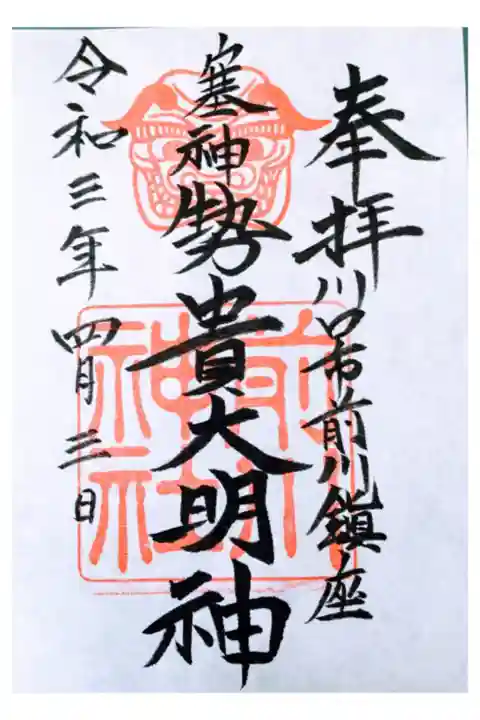 奉拝
川口市前川鎮座
塞神勢貴大明神
令和三年四月三日
前川神社